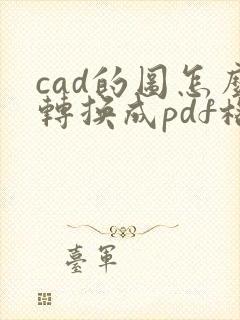 cad的圖怎麼
轉換成pdf格
臺軍